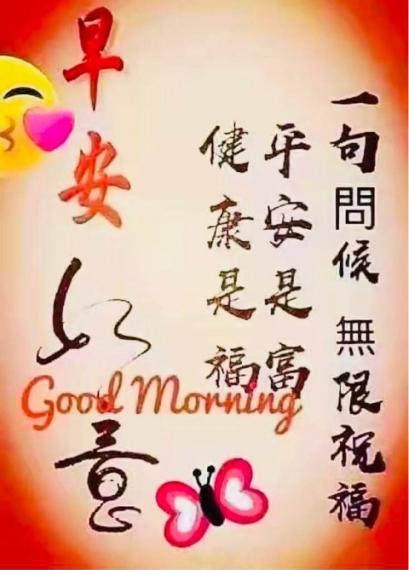 一句問候 無限祝福
平安是富
健康是福
早安
如意
Good Morning